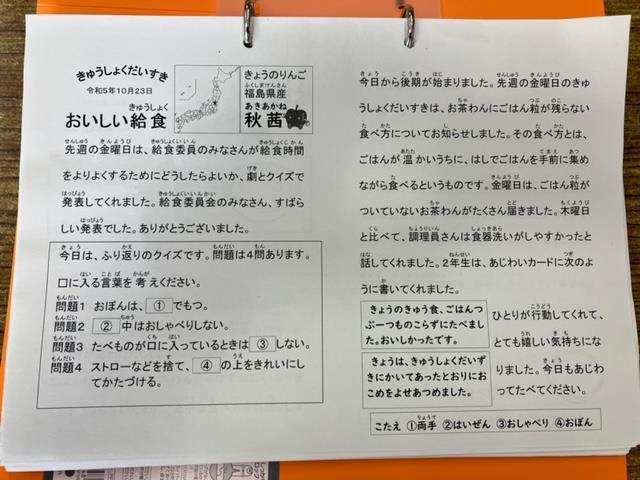 きゅうしょくだいすき
令和5年10月23日
おいしい給食
きょうのりんご
福島県産
秋茜
先週の金曜日は、給食委員のみなさんが給食時間
をよりよくするためにどうしたらよいか、劇とクイズで
発表してくれました。給食委員会のみなさん、すばら
しい発表でした。ありがとうございました。
今日は、ふり返りのクイズです。問題は4問あります。
口に入る言葉を考えください。
問題1 おぼんは、①でもつ。
問題2 ②中はおしゃべりしない。
問題3 たべものが口に入っているときは③しない。
問題4 ストローなどを捨て、④の上をきれいにし
てかたづける。
今日から後期が始まりました。先週の金曜日のきゅ
うしょくだいすきは、お茶わんにごはん粒が残らない
食べ方についてお知らせしました。その食べ方とは、
ごはんが温かいうちに、はしでごはんを手前に集め
ながら食べるというものです。金曜日は、ごはん粒が
ついていないお茶わんがたくさん届きました。木曜日
と比べて、調理員さんは食器洗いがしやすかったと
話してくれました。2年生は、あじわいカードに次のよ
うに書いてくれました。
きょうのきゅう食、ごはんつ
ぶ一つものこらずにたべまし
た。おいしかったです。
きょうは、きゅうしょくだいず
きにかいてあったとおりにお
こめをよせあつめました。
ひとりが行動してくれて、
とても嬉しい気持ちにな
りました。今日もあじわ
ってたべてください。
こたえ ①両手 ②はいぜん ③おしゃべり ④おぼん